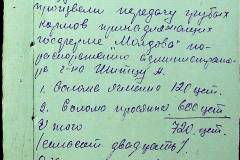 произвели передачу грубых
кормов принадлежащих
госферме "Молдова" по
распоряжению администрато
ра г-на Шмидт А.
1. Солома ячменно 120 цет.
2. Солома просяная 600 цет.
Итого 720 цет.
(семьсот двадцать).